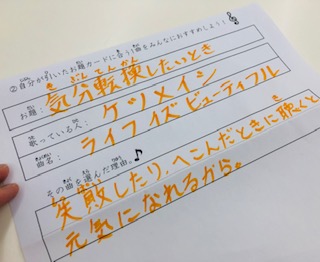 ②自分が引いたお題カードに合う1曲をみんなにおすすめしよう!
お題: 気分転換したいとき
歌っている人: ケツメイシ
曲名: ライフ イズ ビューティフル
その曲を選んだ理由。
失敗したり、へこんだときに聴くと
元気になれるから。